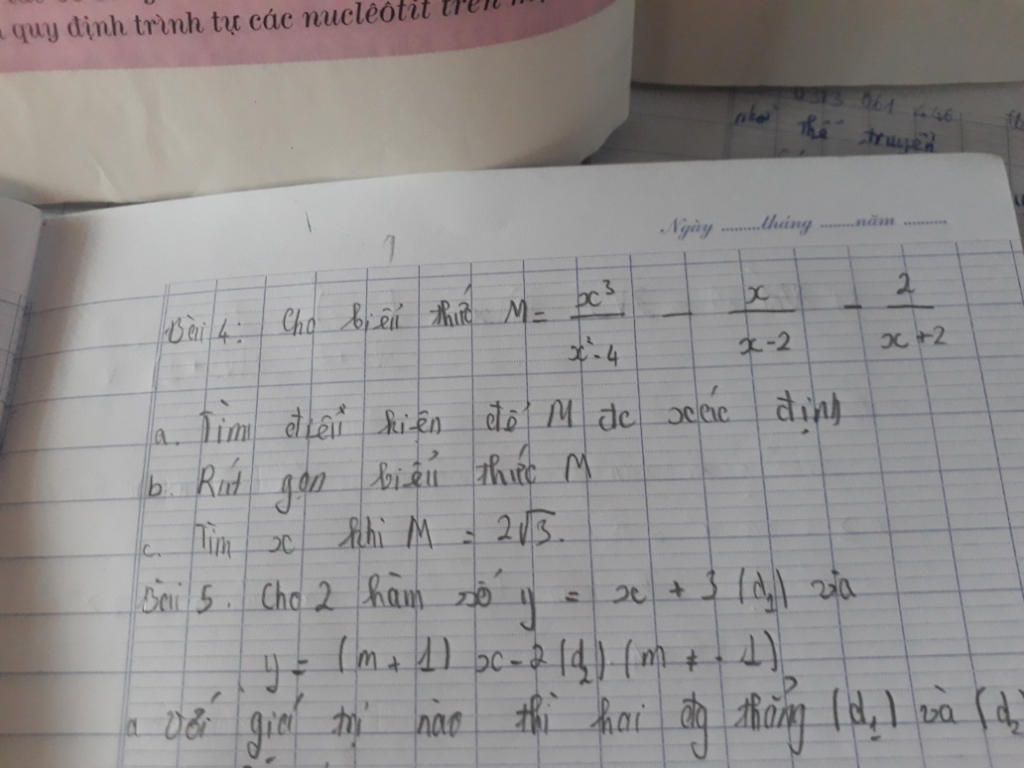 quy định trình tự các nuclêôtit trên
0313 061
nhơ thế truyền
Ngày .........tháng ........năm ..........
Bài 4: Cho biểu thức M = x³/(x²-4) - x/(x-2) - 2/(x+2)
a. Tìm điều kiện để M đc xác định
b. Rút gọn biểu thức M
c. Tìm x khi M = 2√3.
Bài 5. Cho 2 hàm số y = x + 3 (d₁) và
y = (m + 1) x - 2 (d₂) (m ≠ - 1)
a Với giá trị nào thì hai đg thẳng (d₁) và (d₂